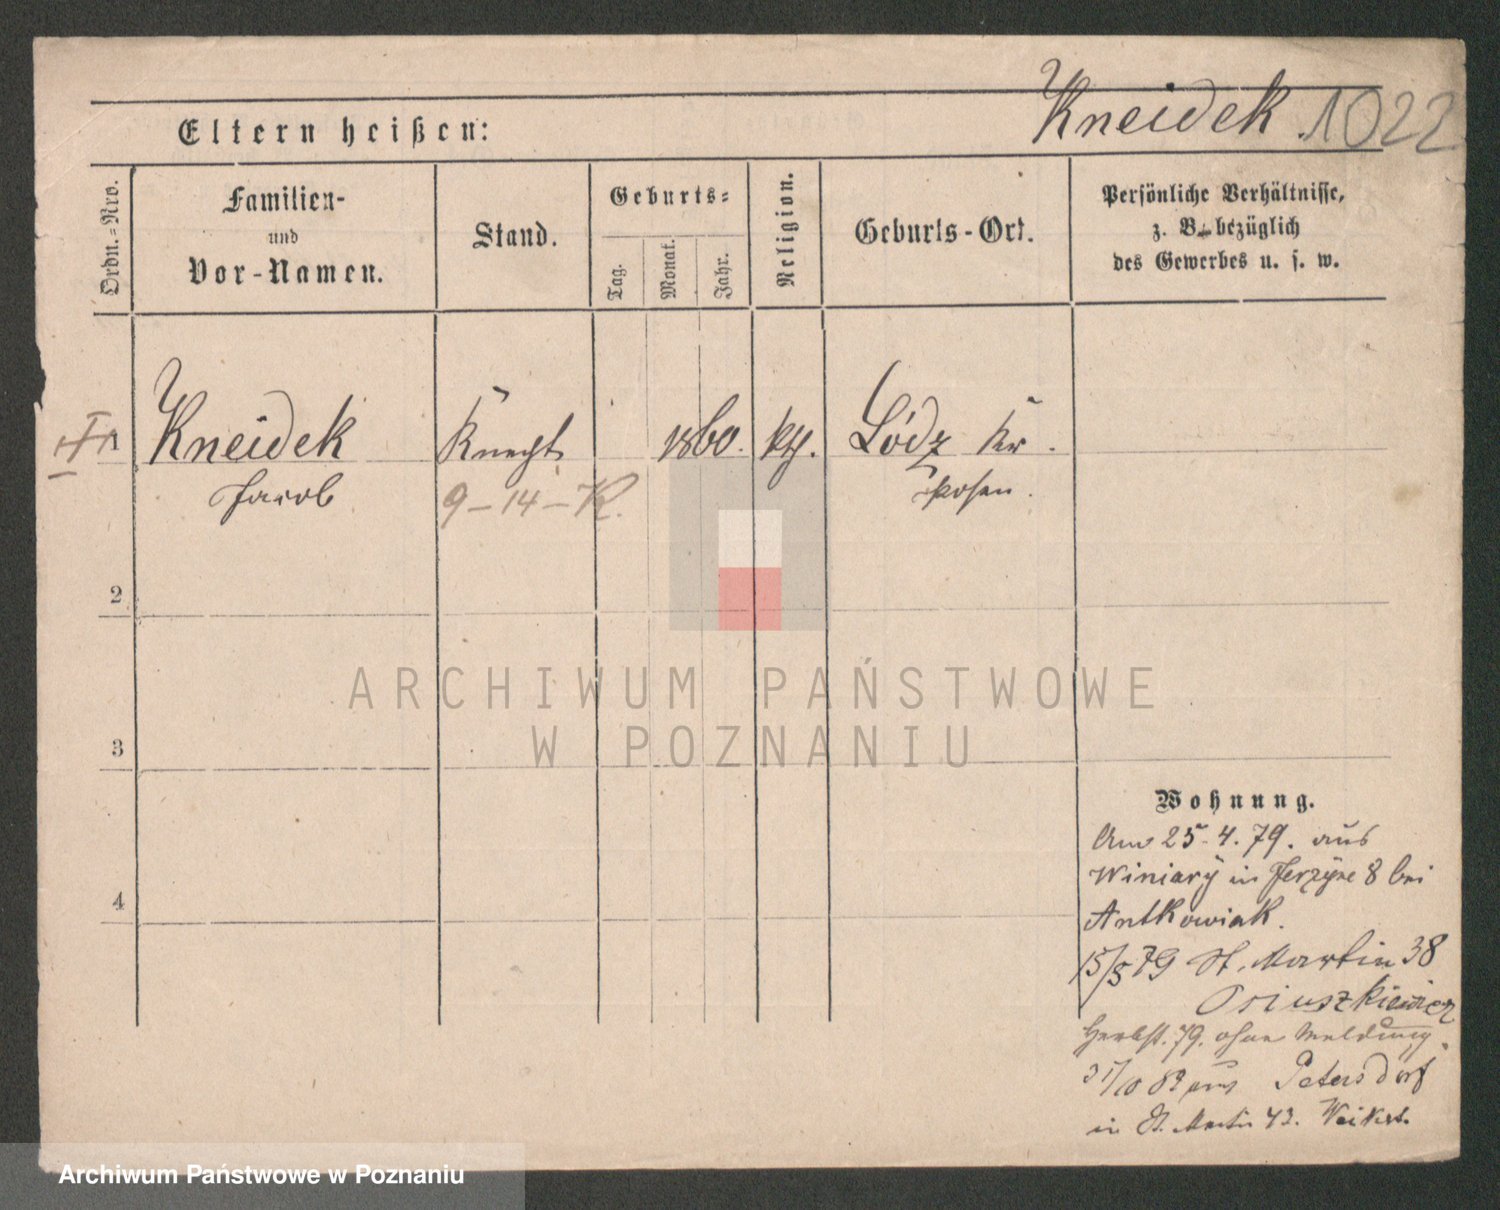 Kneidek 1022
Eltern heißen:
Ordn.-Nro.
Familien-
und
Vor-Namen.
Stand.
Geburts-
Tag.
Monat.
Jahr.
Religion.
Geburts-Ort.
Persönliche Verhältnisse,
z. B. bezüglich
des Gewerbes u. s. w.
1 Kneidek Knecht 1860. kth. Łódz Kr.
Jacob 9-14-K. Posen.
2
3
4
ARCHIWUM PAŃSTWOWE
W POZNANIU
Wohnung.
25.4.79. aus
Winiarÿ in Jerzÿce 8 bei
Antkowiak.
15/5 79 St. Martin 38
Herbst. 79. ohne Meldung.
31/10 aus Petersdorf
in St. Martin 43.
Archiwum Państwowe w Poznaniu